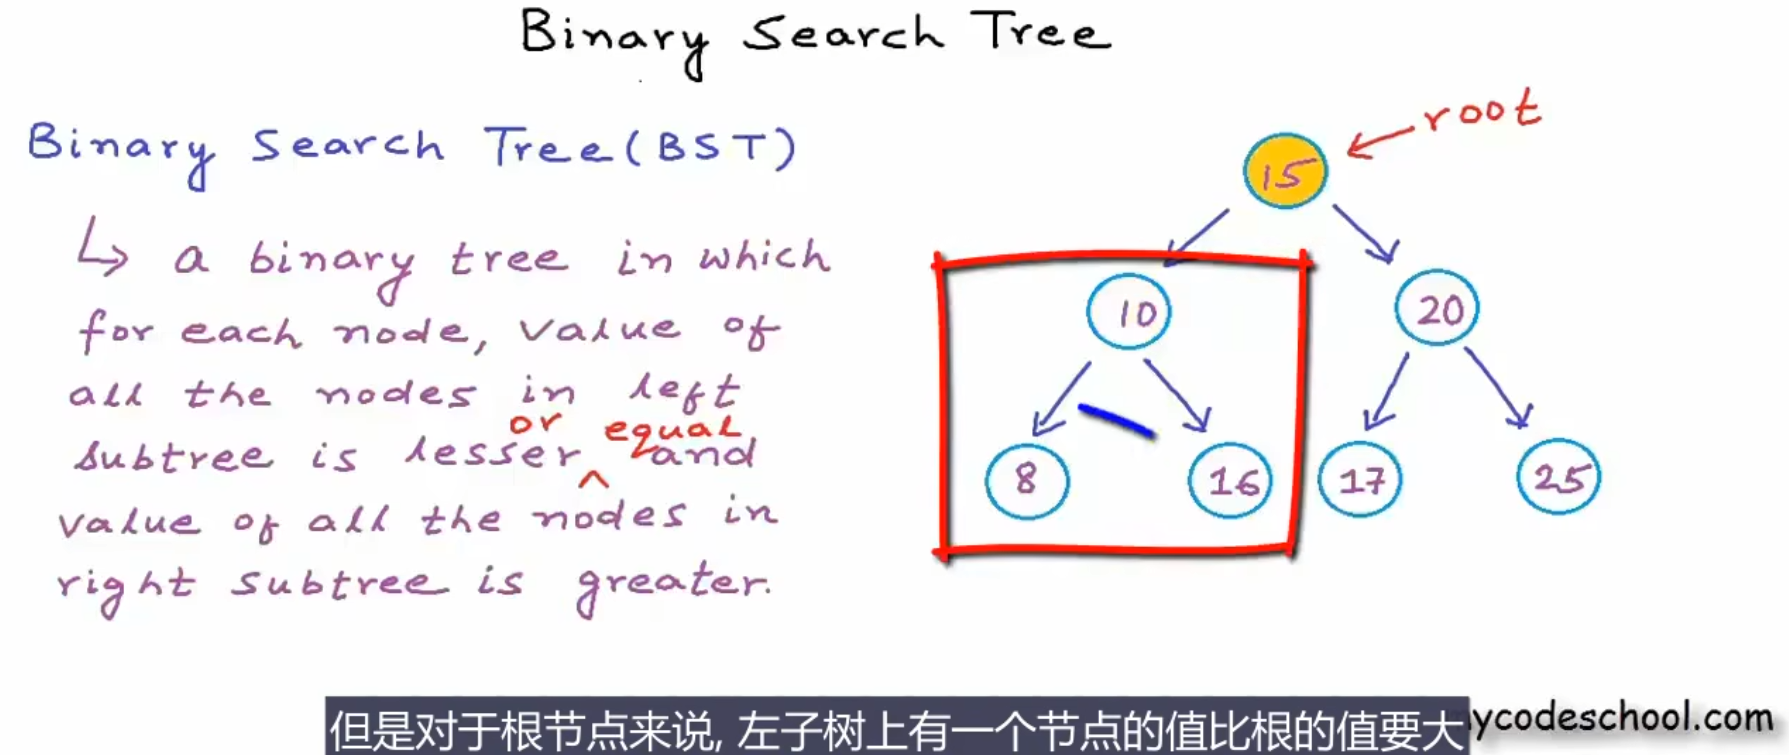 Binary Search Tree
Binary Search Tree (BST)
↳ a binary tree in which
for each node, value of
all the nodes in left
or equal
subtree is lesser ^ and
value of all the nodes in
right subtree is greater.
root
15
10
20
8
16
17
25
但是对于根节点来说, 左子树上有一个节点的值比根的值要大
mycodeschool.com